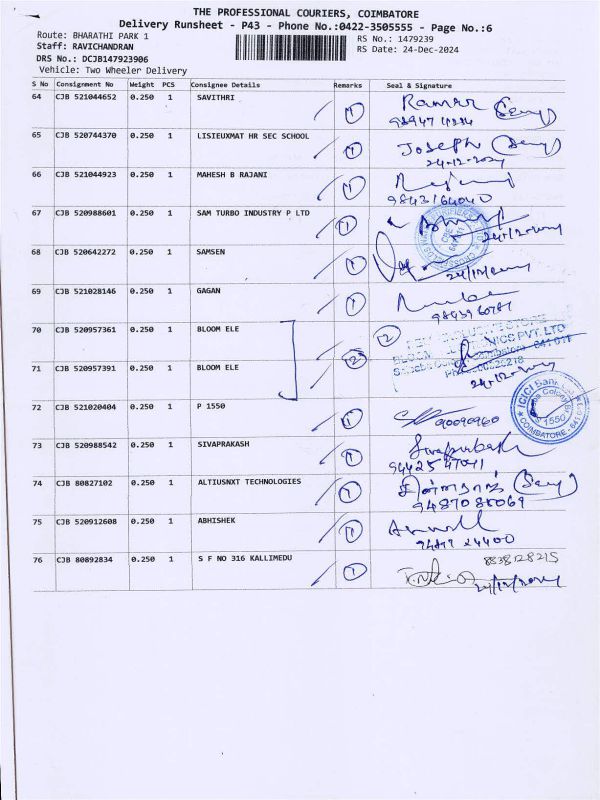 THE PROFESSIONAL COURIERS, COIMBATORE
Delivery Runsheet - P43 - Phone No.:0422-3505555 - Page No.:6
Route: BHARATHI PARK 1
RS No.: 1479239
Staff: RAVICHANDRAN
RS Date: 24-Dec-2024
DRS No.: DCJB147923906
Vehicle: Two Wheeler Delivery
S No Consignment No Weight PCS Consignee Details Remarks Seal & Signature
64 CJB 521044652 0.250 1 SAVITHRI 1
65 CJB 520744370 0.250 1 LISIEUXMAT HR SEC SCHOOL 1 Joseph
24-12-2024
66 CJB 521044923 0.250 1 MAHESH B RAJANI 1 Rajani
9843164040
67 CJB 520988601 0.250 1 SAM TURBO INDUSTRY P LTD 1
24/12/2024
68 CJB 520642272 0.250 1 SAMSEN 1
24/12/2024
69 CJB 521028146 0.250 1 GAGAN 1
70 CJB 520957361 0.250 1 BLOOM ELE 2
71 CJB 520957391 0.250 1 BLOOM ELE 2
24-12-2024
72 CJB 521020404 0.250 1 P 1550 1 90090960
ICICI Bank
1550
COIMBATORE - 641
73 CJB 520988542 0.250 1 SIVAPRAKASH 1 Sivaprakash
9442547041
74 CJB 80827102 0.250 1 ALTIUSNXT TECHNOLOGIES 1
9487085069
75 CJB 520912608 0.250 1 ABHISHEK 1
76 CJB 80892834 0.250 1 S F NO 316 KALLIMEDU 1 8838128215
24/12/2024